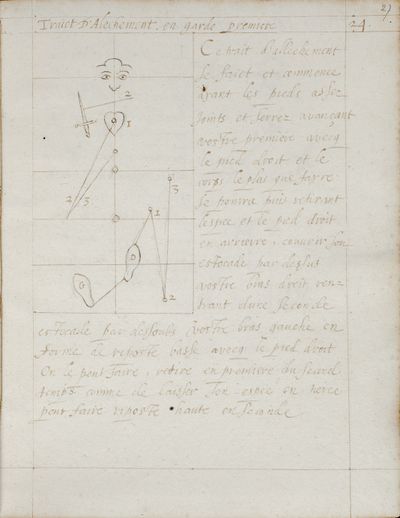 29
Traict D'Alechement en garde premiere
24
Ce trait d'allechement
se faict et commence
ayant les pieds assez
joints et serrez avançant
vostre premiere avecq
le pied droit et le
corps le plus que faire
se pourra puis retirant
l'espee et le pied droit
en arriere, couvrir son
estocade par dessus
vostre bras droit ren=
trant d'une seconde
estocade par dessoubs vostre bras gauche en
forme de riposte basse avecq le pied droit
On le peut faire, retire en premiere du
temps comme de laisser son espee en tierce
pour faire riposte haute en seconde
2
1
2 3
3
1
D
G
2